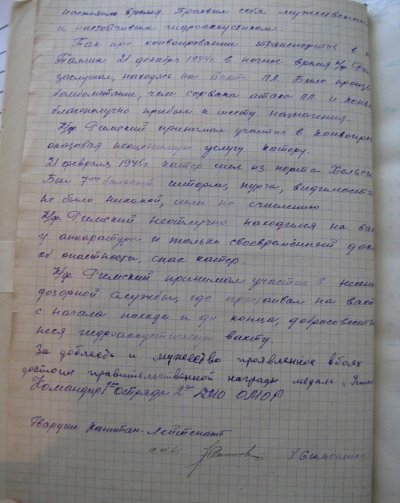 настоящее время. Проявил себя мужественным
и настойчивым гидроакустиком
Так при конвоировании транспортов в п.
Таллин 21 декабря 1944 г. в ночное время К/ф
находясь на вахте ПЛ. Было произ
бомбометание, чем сорвана атака ПЛ и конв
благополучно прибыл к месту назначения.
К/ф Римский принимал участие в конвоиров
оказывая неоценимую услугу катеру.
21 февраля 1945 г. катер шел из порта
Был 7ми бальный шторм, пурга, видимости
не было никакой, шли по счислению
К/ф. Римский неотлучно находился на вах
у аппаратуры и только своевременный док
об опасности, спас катер.
К/ф. Римский принимал участие в
дозорной службы, где на вахте
с начала похода и до конца, добросовестно
неся гидроакустическую вахту.
За доблесть и мужество проявленное в боях
достоин правительственной награды медаль "Ушак
Командир 1го отряда 2го ОМОР
Гвардии Капитан-Лейтенант